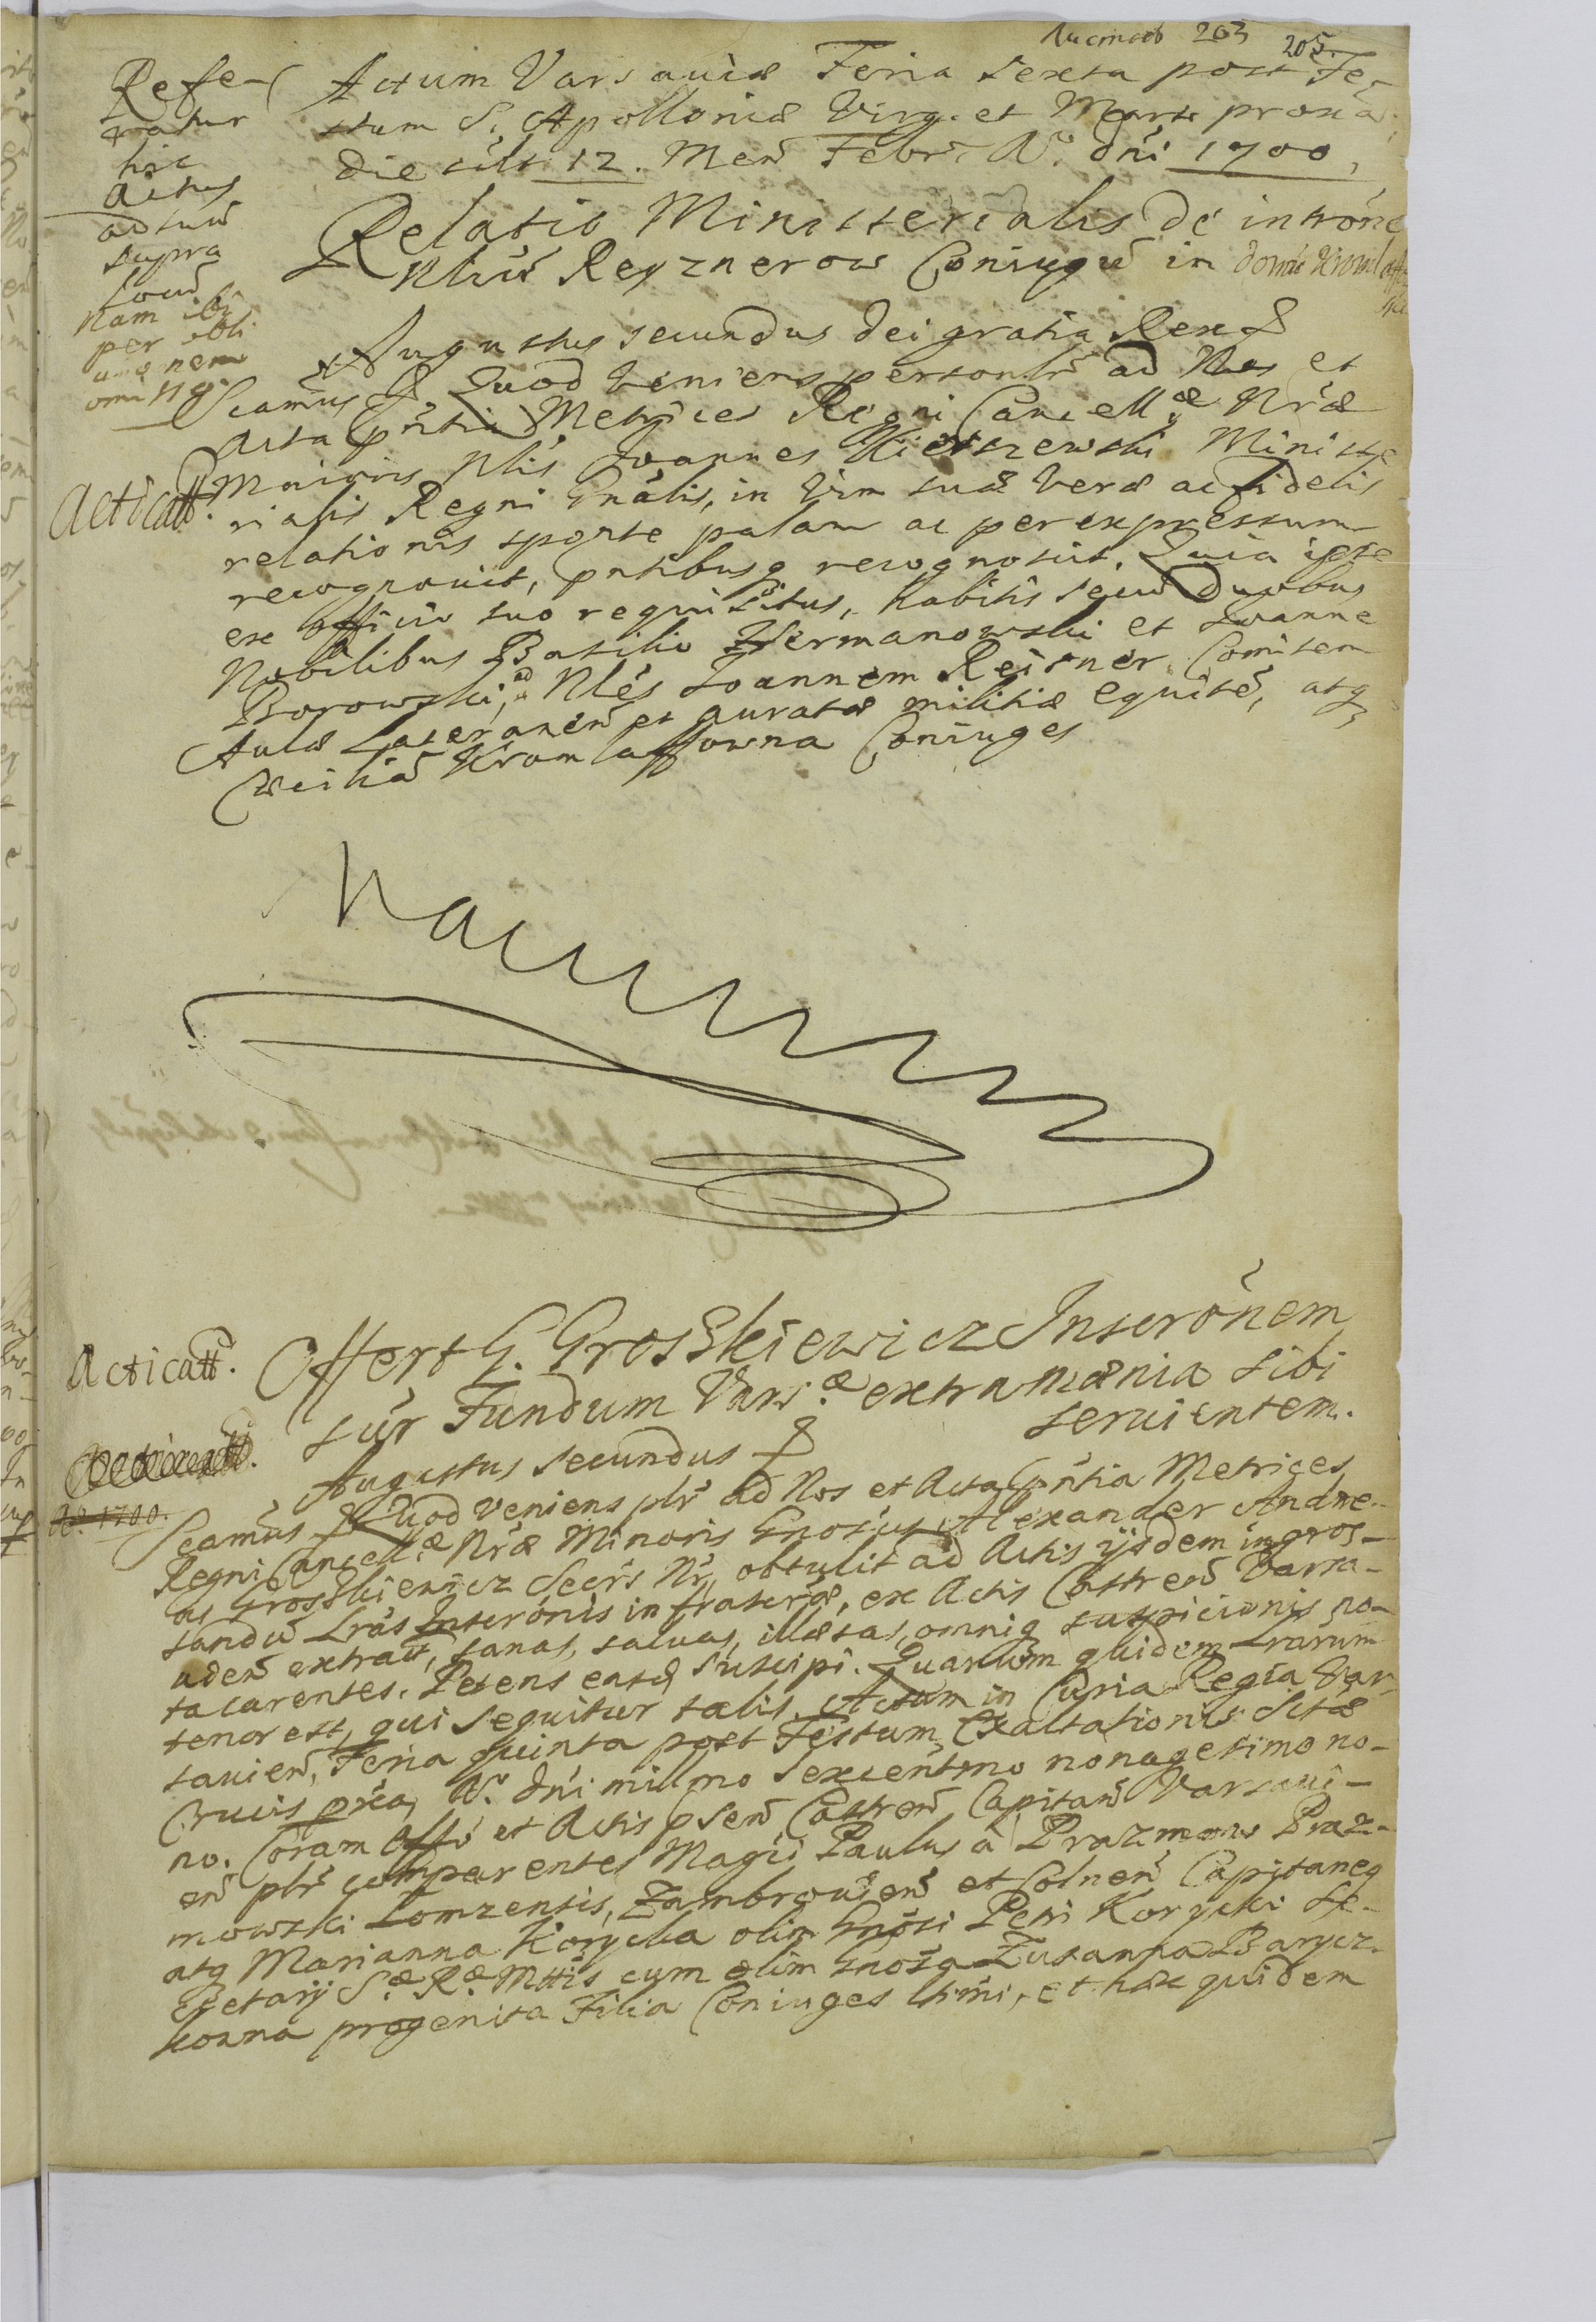 Листов 203 205.
Refe-
ratur
hic
Actus
ad suũ
supra
locũ
Nam ibi
per obli
uionem
omi
Actum Varsauiæ Feria sexta post Fe-
stum S. Apolloniæ Virg. et Mart. proxa
die scilt 12. Men Febr. Aº. dni 1700,
Relatio Ministerialis de introne
Nbliũ Reyznerow Coniugũ in domũ
Augustus secundus Dei gratia Rex
Scamus Quod Veniens personlr ad Nos et
Acta pntia Metrices Regni Cancellæ Nræ
Acticatt.
Minoris Nblis Joannes Ministe
rialis Regni Gnalis, in Vim suæ Veræ ac fidelis
relationis sponte palam ac per expressum
recognouit, pntibusq recognoscit. Quia ipse
ex officio suo requisitus, habitis secũ duobus
Nobilibus Basilio Hermanowski et Joanne
Borowski, ad Nbles Joannem Reisner Comitem
Aulæ Lateranen et auratæ militiæ equitẽ, atq
Cæciliã Kromlaffowna Coniuges
Acticatt.
Offert G. Groskiewicz Inscronem
sũr Fundum Varsæ extra mænia sibi
seruientem.
Aº. 1700.
Augustus secundus
Scamus Quod Veniens plr ad Nos et Acta pntia Metrices
Regni Cancellæ Nræ Minoris Gnosus Alexander Andre-
as Groskiewicz Secrs Nr, obtulit ad Actis ijsdem ingros-
sandũ Lras Inscronis infrascrõ, ex Actis Castren Varsa-
uien extratt, sanas, saluas, illæsas, omniq suspicionis no-
ta carentes. Petens easd suscipi. Quarum quidem Lrarum
tenor est, qui sequitur talis. Actum in Curia Regia Var-
sauien, Feria quinta post Festum Exaltationis Sctæ
Crucis pxa, Aº. dni millmo sexcentmo nonagesimo no-
no. Coram Offo et Actis psen Castren Capitan Varsaui-
en plr comparentes Magci Paulus à Prazmow Praz-
mowski Lomzensis, Zambrouien et Colnen Capitaneq
atq Marianna Korycka olim Gnosi Petri Korycki Se-
cretarij Sæ Ræ Mttis cum olim Gnosa Zusanna Barycz-
kowna progenita Filia Coniuges ltimi, et hæc quidem